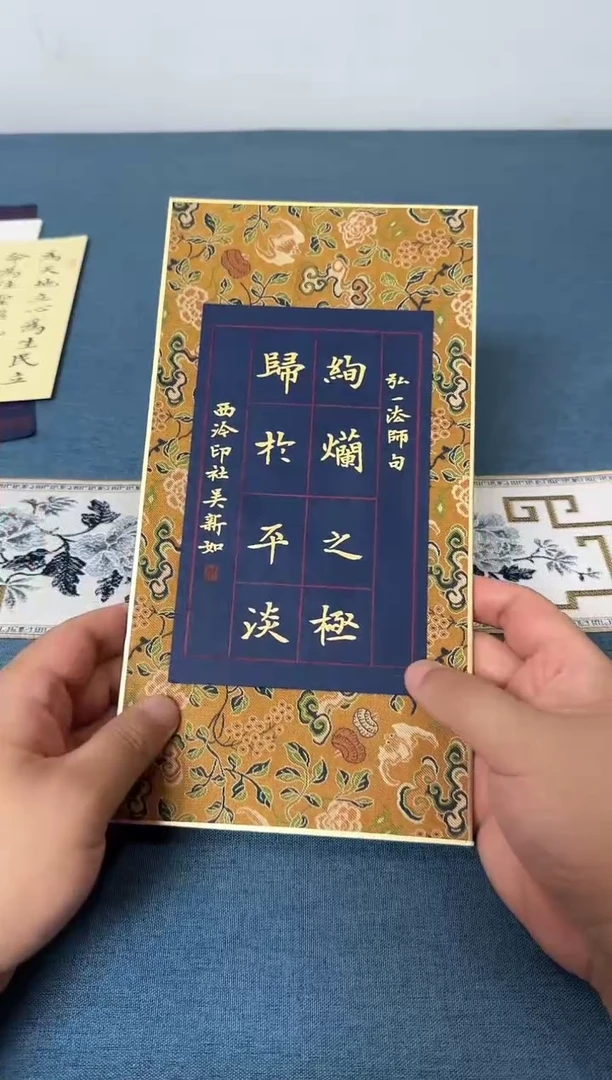 弘一法師句
絢爛之極
歸於平淡
西泠印社吳新如
為天地立心為生民立